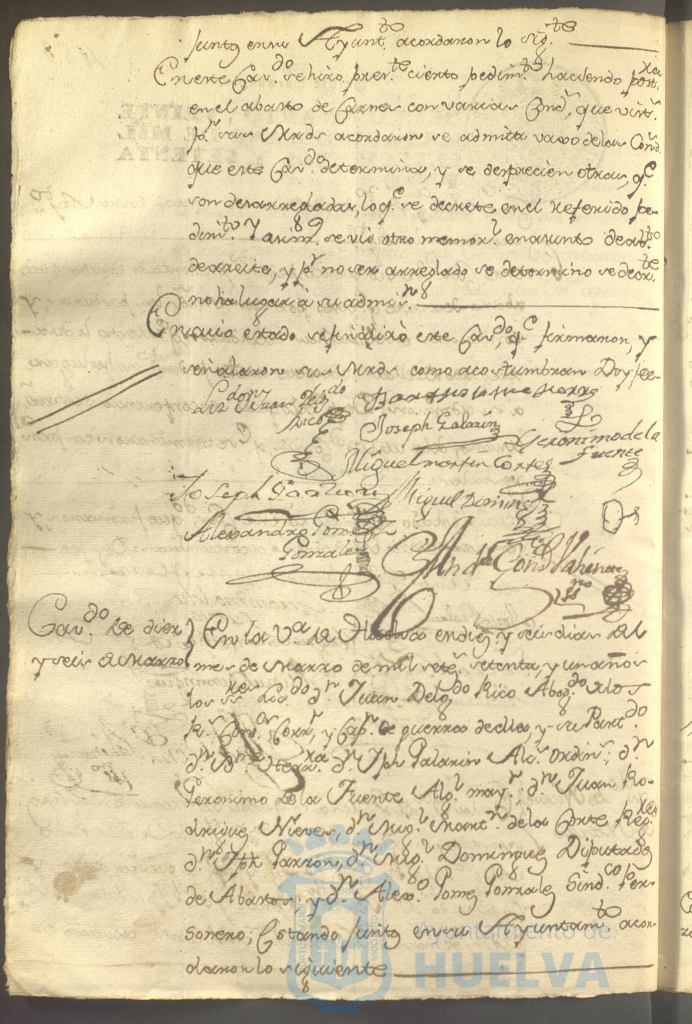 juntos en su Ayunt.to acordaron lo sig.te
En este Cav.do se hizo pres.te ciento pedim.to haciendo post.ra
en el abasto de Carnes con varias Cond.s, que vist.s
p.r sus Mrds acordaron se admitta vaxo de las Cond.s
que este Cav.do determina, y se desprecien otras, q.e
son desarregladas, lo q.e se decrete en el referido pe-
dim.to Y asim.o se vió otro memor.l en asunto de ab.to
de aceite, y p.r no ser arreglado se determino se decr.te
No ha lugar à su admis.n
En cuio estado se finalizó este Cav.do, q.e firmaron, y
señalaron sus Mrds como acostumbran Doy fee-
Liz.do dn Juan Delg.do
Rico
Joseph Galarin
Geronimo de la
Fuente
Miguel martin Cortes
Joseph Garzon
Miguel Doming.z
Alexandro Gomez
Gonzalez
Cav.do de diez
y seis de Marzo
En la V.a de Huelva en diez y seis dias del
mes de Marzo de mil set.s setenta, y un años
los ss.res Lizd.do d.n Juan Delg.do Rico Abog.do de los
R.s Cons.os Corr.r, y Cap.n de guerra de ella, y su Part.do
d.n B.me Herr.ra d.n Jph Galarin Alc.s Ordin.s; d.n
Geronimo de la Fuente Alg.l may.r d.n Juan Ro-
driguez Nieves, d.n Mig.l Mart.n de la Corte Reg.res
d.n Jph Garzon, d.n Mig.l Dominguez Diputados
de Abastos; y d.n Alex.o Gomez Gonzalez Sind.co Per-
sonero; Estando juntos en su Ayuntam.to acor-
daron lo siguiente
Ayuntamiento de
HUELVA